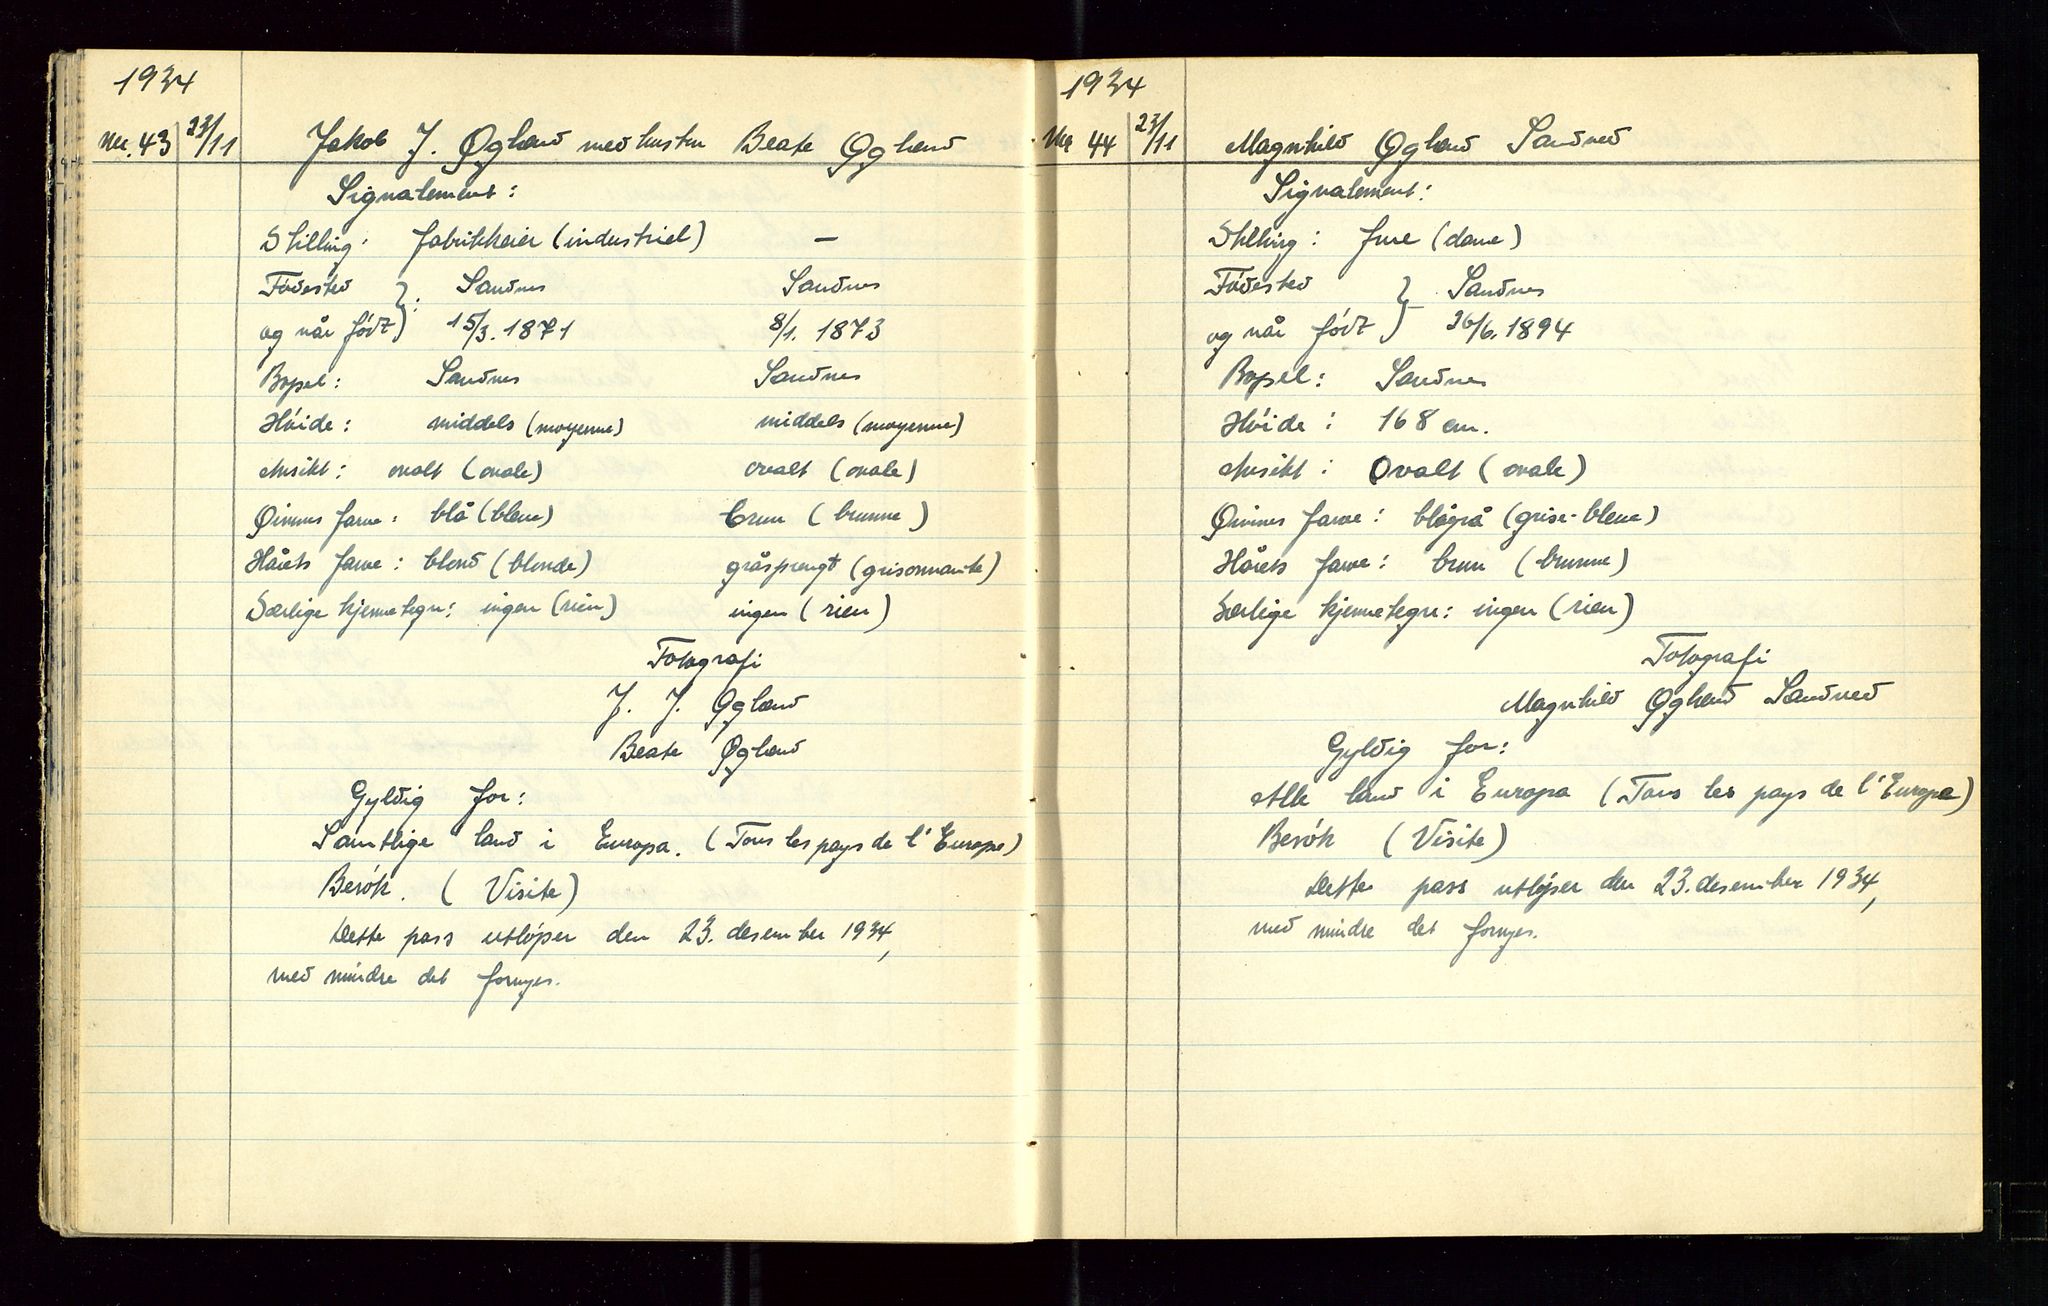 1934
Nr. 43 23/11 Jakob J. Øglænd med hustru Beate Øglænd
Signalement:
Stilling: fabrikkeier (industriel) —
Fødested } : Sandnes Sandnes
og når født 15/3. 1871 8/1. 1873
Bopel: Sandnes Sandnes
Høide: middels (moyenne) middels (moyenne)
Ansikt: ovalt (ovale) ovalt (ovale)
Øinnes farve: blå (bleue) brun (brunne)
Hårets farve: blond (blonde) gråsprengt (grisonnante)
Særlige kjennetegn: ingen (rien) ingen (rien)
Fotografi
J. J. Øglænd
Beate Øglænd
Gyldig for:
Samtlige land i Europa. (Tous les pays de l'Europe)
Besøk. (Visite)
Dette pass utløper den 23. desember 1934,
med mindre det fornyes.
1934
Nr 44 23/11 Magnhild Øglænd Sandved
Signalement:
Stilling: frue (dame)
Fødested } Sandnes
og når født 26/6. 1894
Bopel: Sandnes
Høide: 168 cm.
Ansikt: Ovalt (ovale)
Øinnes farve: blågrå (grise-bleue)
Hårets farve: brun (brunne)
Særlige kjennetegn: ingen (rien)
Fotografi
Magnhild Øglænd Sandved
Gyldig for:
Alle land i Europa (Tous les pays de l'Europe)
Besøk (Visite)
Dette pass utløper den 23. desember 1934,
med mindre det fornyes.